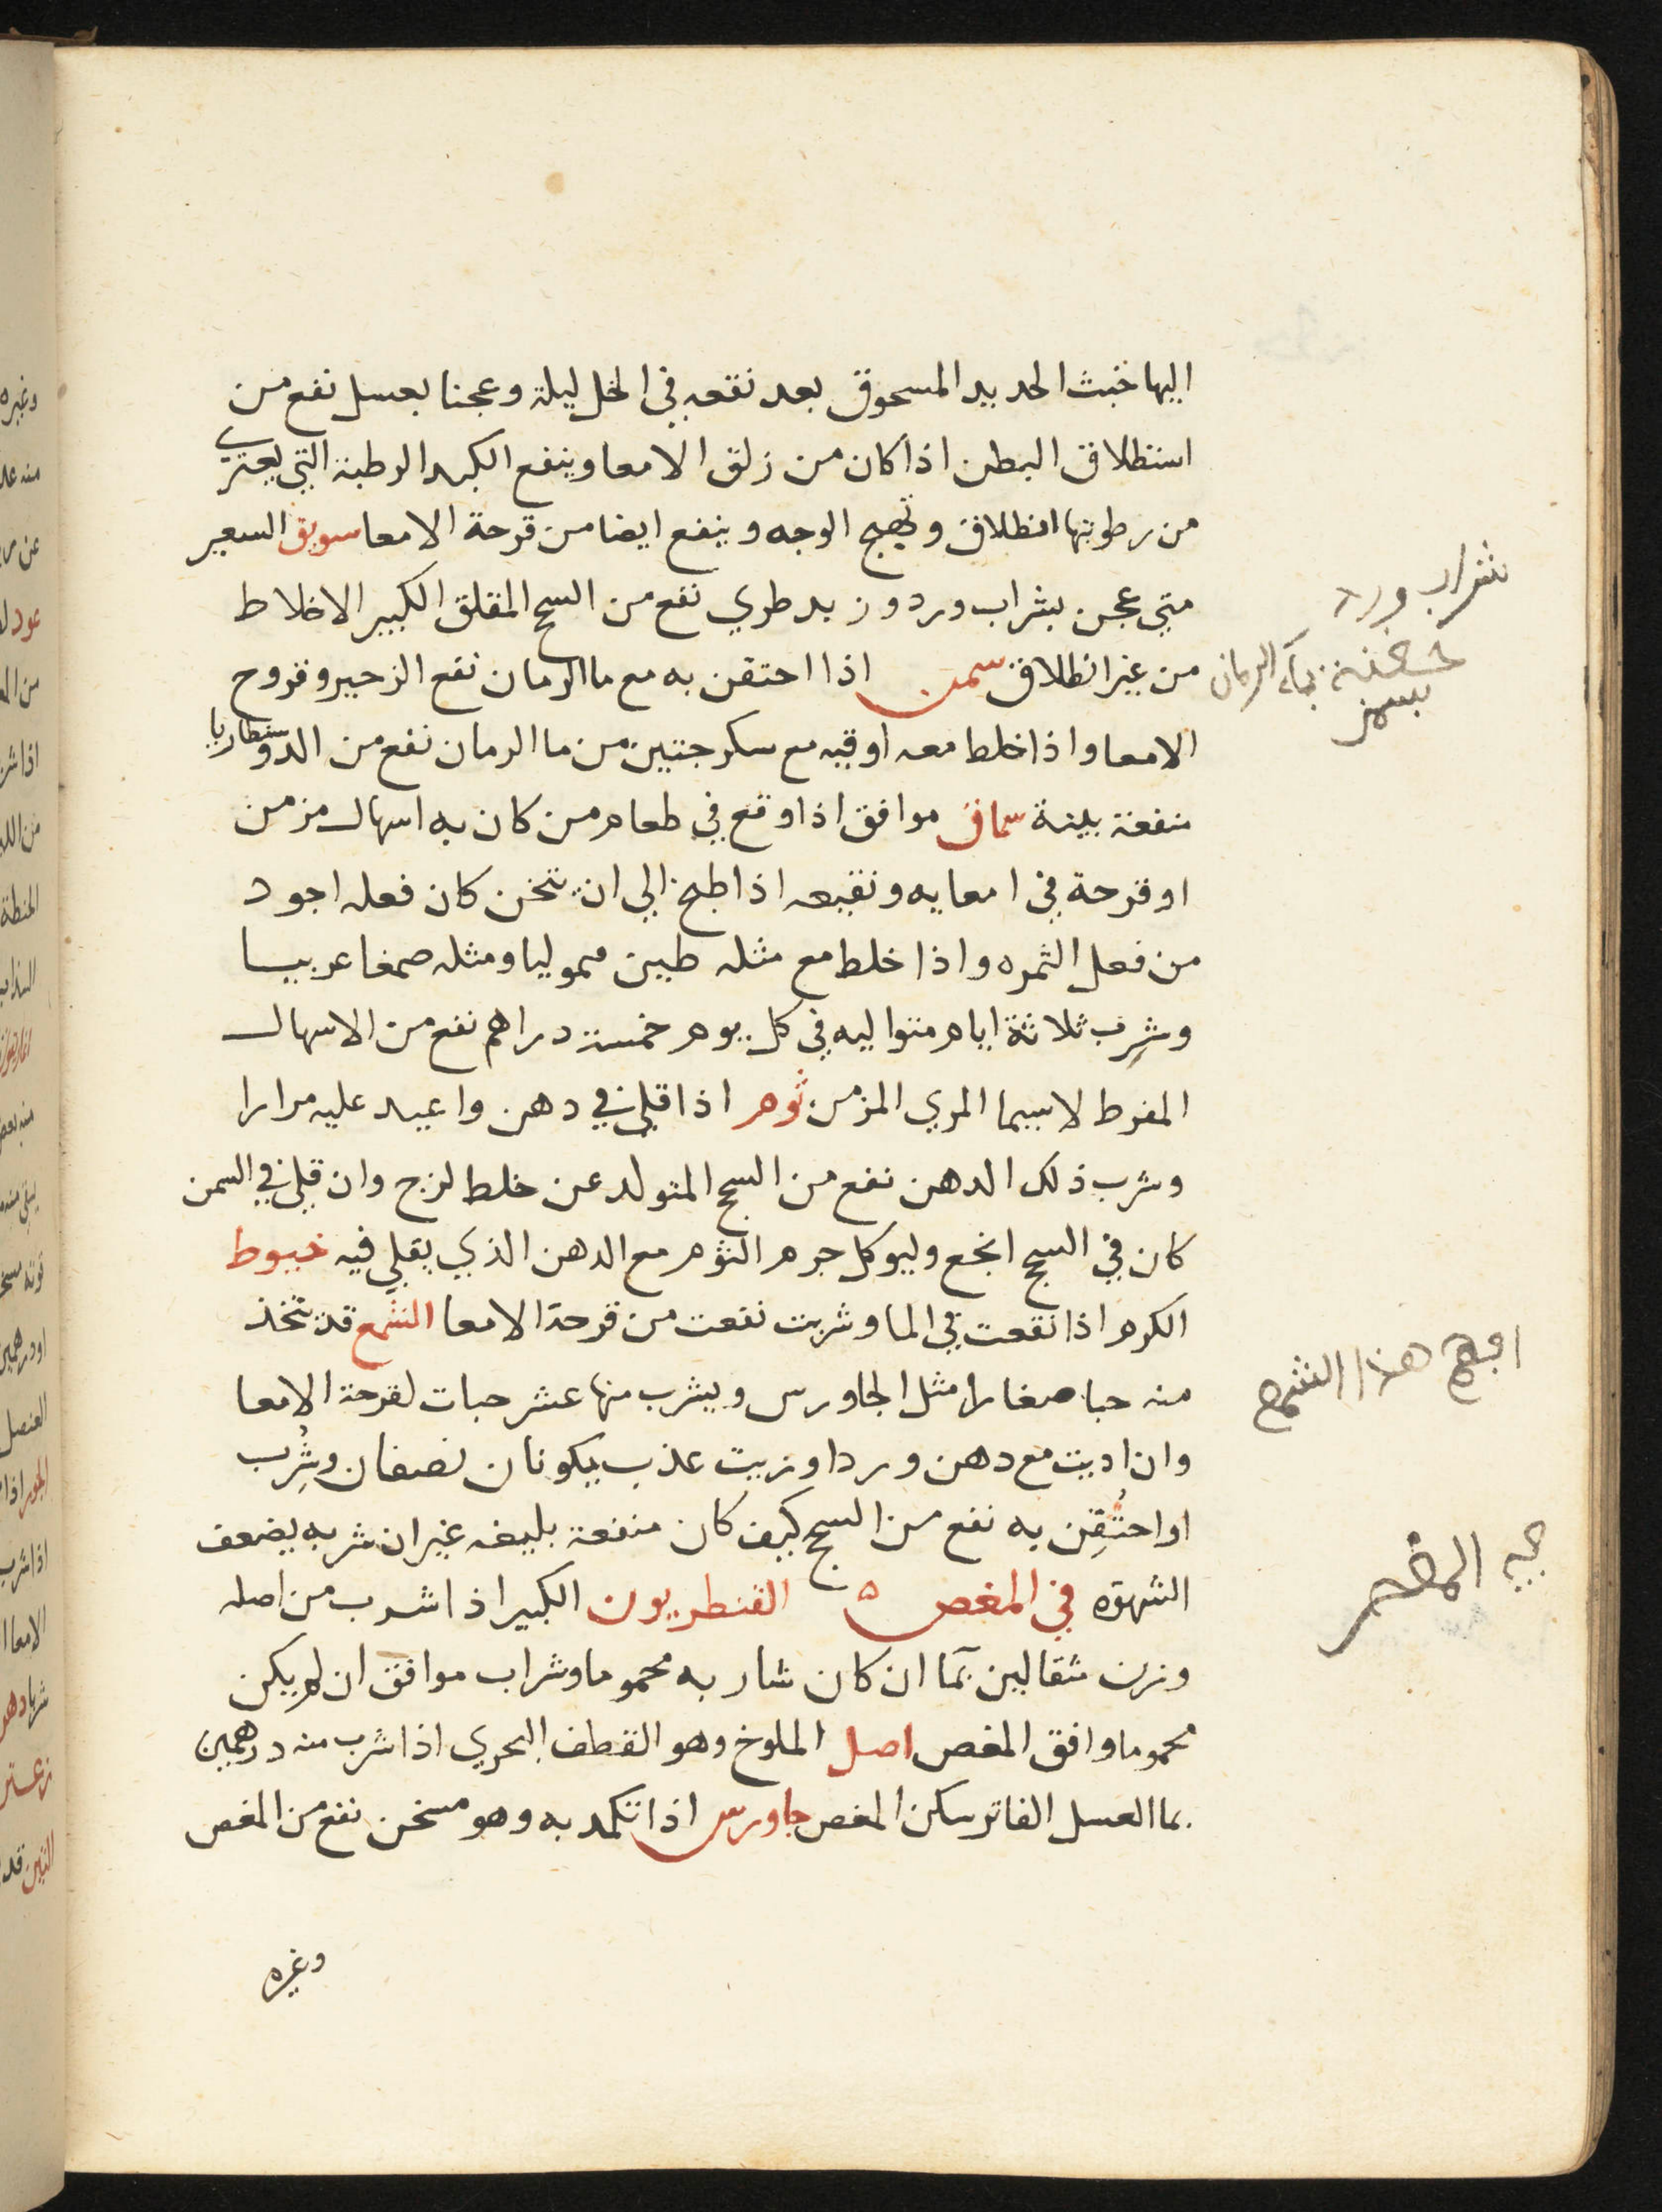 اليها خبث الحديد المسحوق بعد نقعه في الخل ليلة وعجنا بعسل نفع من
استطلاق البطن اذا كان من زلق الامعا وينفع الكبد الرطبة التي يعتري
من رطوبتها انطلاق وتهيج الوجه وينفع ايضا من قرحة الامعا سويق السعير
متي عجن بشراب ورد وزبد طري نفع من السحج المقلق الكبير الاخلاط
من غير انطلاق سمن اذا احتقن به مع ما الرمان نفع الزحير وقروح
الامعا واذا خلط معه اوقيه مع سكرجتين من ما الرمان نفع من الدوسنطاريا
منفعة بينة سماق موافق اذا وقع في طعام من كان به اسهال مزمن
او قرحة في امعايه ونقيعه اذا طبخ الي ان يثخن كان فعله اجود
من فعل الثمره واذا خلط مع مثله طين قيموليا ومثله صمغا عربيا
وشرب ثلاثة ايام متواليه في كل يوم خمسة دراهم نفع من الاسهال
المفرط لاسيما المري المزمن ثوم اذا قلي في دهن واعيد عليه مرارا
وشرب ذلك الدهن نفع من السحج المتولد عن خلط لزج وان قلي في السمن
كان في السحج انجع وليوكل جرم الثوم مع الدهن الذي يقلي فيه خيوط
الكرم اذا نقعت في الما وشربت نفعت من قرحة الامعا الشمع قد يتخذ
منه حبا صغارا مثل الجاورس ويشرب منها عشر حبات لقرحة الامعا
وان اديت مع دهن ورد او زيت عذب يكونان نصفان وشُرِب
او احتُقِن به نفع من السحج كيف كان منفعة بليغه غير ان شربه يضعف
الشهوه في المغص ه القنطريون الكبير اذا شرب من اصله
وزن مثقالين بمآ ان كان شاربه محموما وشراب موافق ان لم يكن
محموما وافق المغص اصل الملوخ وهو القطف البحري اذا شرب منه درهمين
بما العسل الفاتر سكن المغص جاورس اذا تكمد به وهو مسخن نفع من المغص
وغيره
شراب ورد
حقنة بمآء الرمان
بسمن
هذا الشمع
المغص